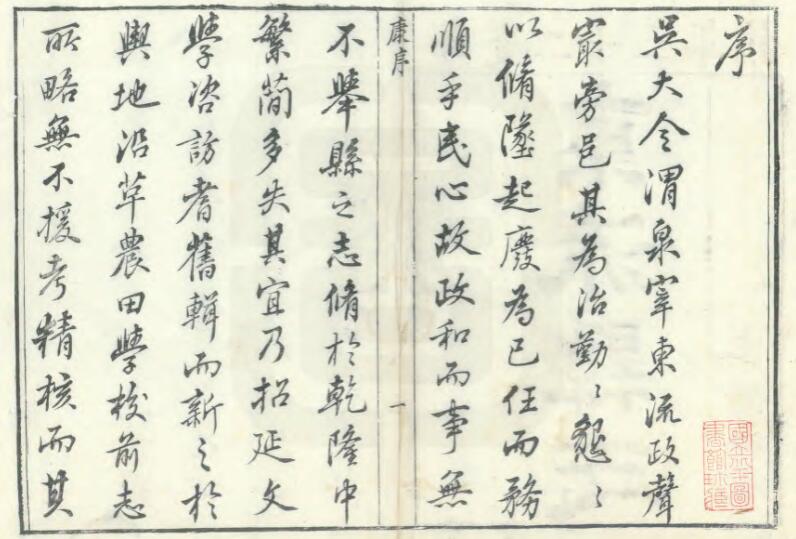 序
吳大令渭泉宰東流政聲
㝡旁邑其為治勤〻懇〻
以脩墜起廢為已任而務
順乎民心故政和而事無
康序
一
不舉縣之志脩於乾隆中
繁簡多失其宜乃招延文
學咨訪耆舊輯而新之於
輿地沿革農田學校前志
所略無不援考精核而其